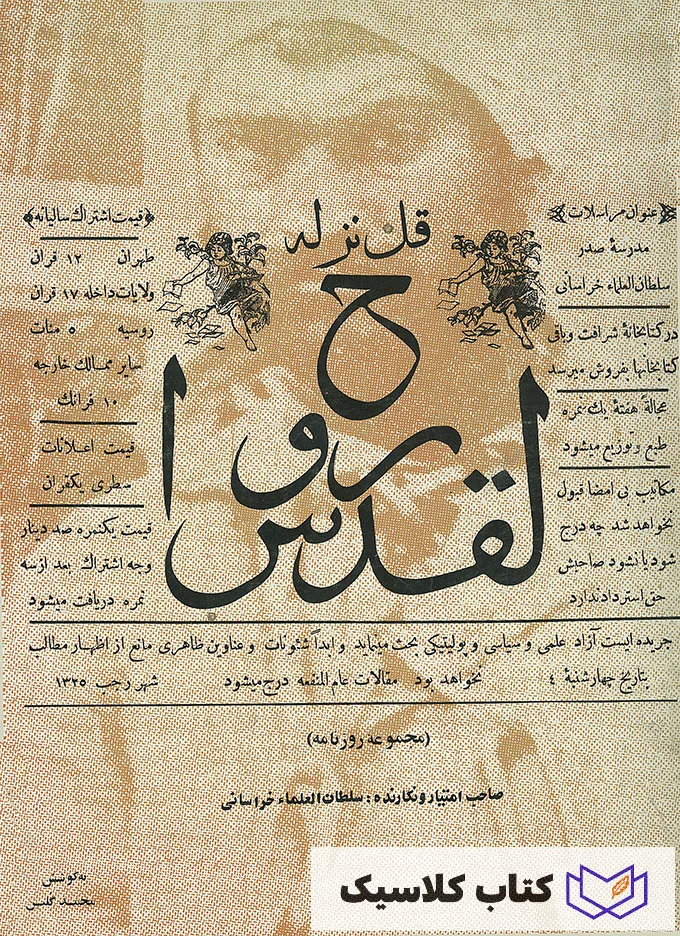 قل نزله
روح القدس
﴿عنوان مراسلات﴾
مدرسهٔ صدر
سلطان العلماء خراسانی
در کتابخانهٔ شرافت و باقی
کتابخانها بفروش میرسد
عجالةً هفتهٔ یک نمره
طبع و توزیع میشود
مکاتیب بی امضا قبول
نخواهد شد چه درج
شود یا نشود صاحبش
حق استرداد ندارد
﴿قیمت اشتراک سالیانه﴾
طهران ۱۲ قران
ولایات داخله ۱۷ قران
روسیه ۵ منات
سایر ممالک خارجه
۱۰ فرانک
قیمت اعلانات
سطری یکقران
قیمت یکنمره صد دینار
وجه اشتراک بعد از سه
نمره دریافت میشود
جریده ایست آزاد علمی و سیاسی و پولیتیکی بحث مینماید و ابداً شئونات و عناوین ظاهری مانع از اظهار مطالب
بتاریخ چهارشنبهٔ ٤ نخواهد بود مقالات عام المنفعه درج میشود شهر رجب ۱۳۲۵
(مجموعه روزنامه)
صاحب امتیاز و نگارنده : سلطان العلماء خراسانی
به کوشش
محمد گلبن
کتاب کلاسیک